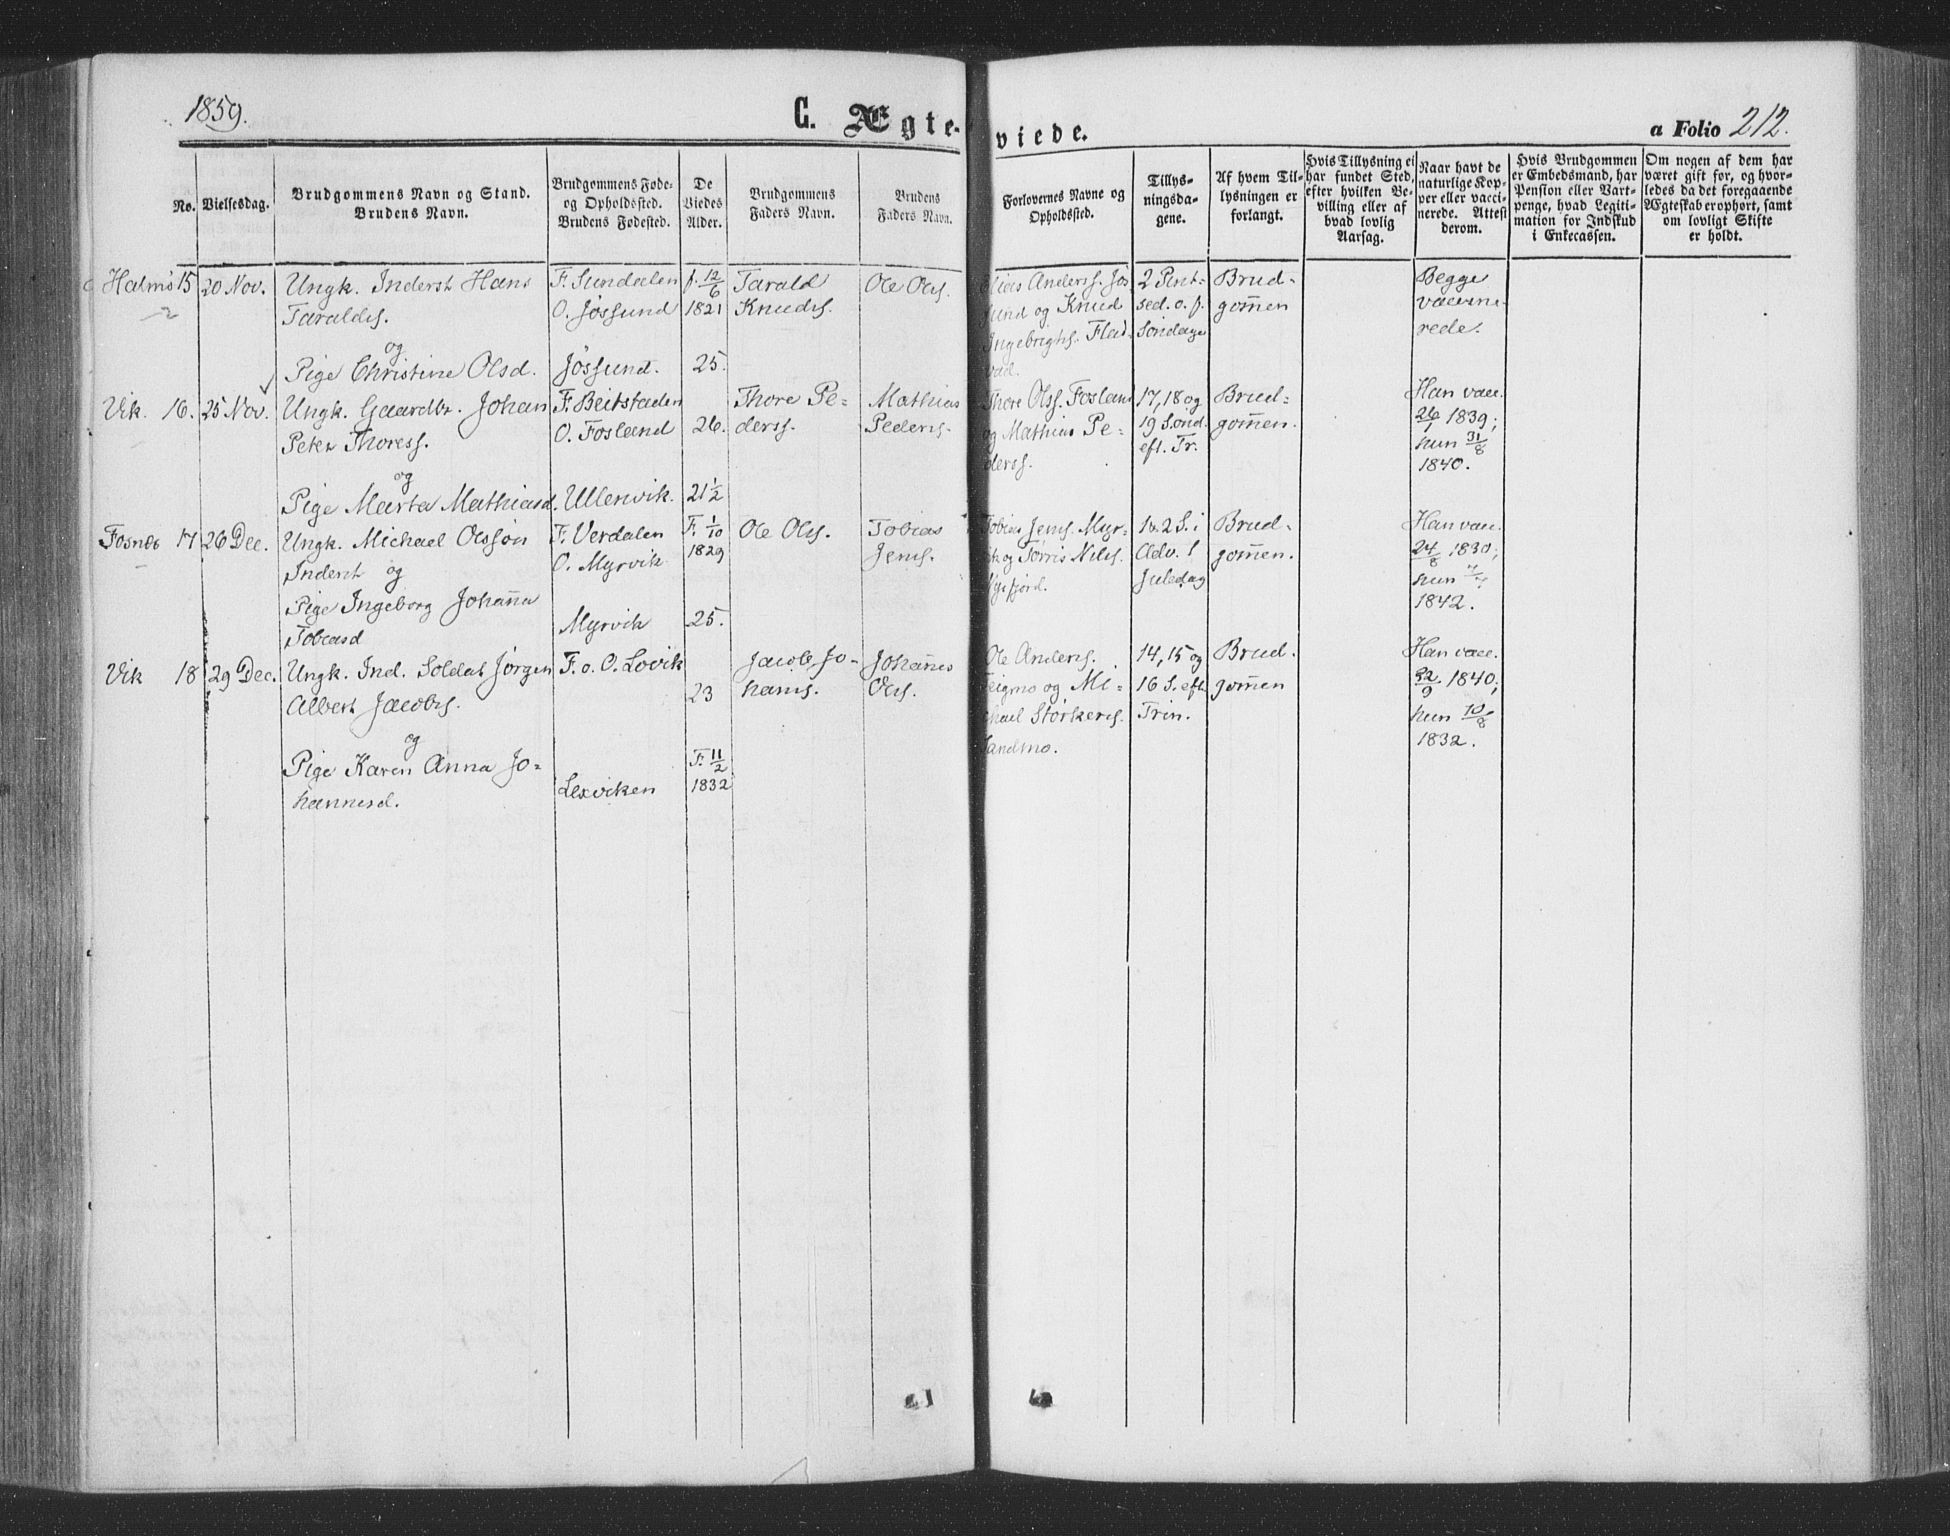 1859.
C. Ægteviede.
a Folio 212.
No.
Vielsesdag.
Brudgommens Navn og Stand.
Brudens Navn.
Brudgommens Føde-
og Opholdssted.
Brudens Fødested.
De
Viedes
Alder.
Brudgommens
Faders Navn.
Brudens
Faders Navn.
Forlovernes Navne og
Opholdssted.
Tillys-
ningsda-
gene.
Af hvem Til-
lysningen er
forlangt.
Hvis Tillysning ei
har fundet Sted,
efter hvilken Be-
villing eller af
hvad lovlig
Aarsag.
Naar havt de
naturlige Kop-
per eller vacci-
nerede. Attest
derom.
Hvis Brudgommen
er Embedsmand, har
Pension eller Vart-
penge, hvad Legiti-
mation for Indskud
i Enkecassen.
Om nogen af dem har
været gift før, og hvor-
ledes da det foregaaende
Ægteskab er ophørt, samt
om lovligt Skifte
er holdt.
Halmø 15
20 Nov.
Ungk. Inderst Hans
Taralds.
og
Pige Christine Olsd.
F. Sundalen
O. Jøssund
Jøssund.
f. 12/6
1821
25.
Tarald
Knuds.
Ole Ols.
Anders. Jøs
sund og Knud
Ingebrigts. Flad-
vad.
2 Pint-
sed. o. f.
Søndage
Brud-
gom̄en
Begge
vaccine
rede.
Vik. 16.
25 Nov.
Ungk. Gaardbr. Johan
Peter Thoress.
og
Pige Marta Mathiasd.
F. Beitstaden
O. Fosland
Ullenvik.
26.
21 1/2
Thore Pe-
derss.
Mathias
Peders.
Thore Olss. Fosland
og Mathias Pe-
derss.
17, 18 og
19 Sønd.
eft. Tr.
Brud-
gom̄en.
Han vacc.
26/1 1839;
hun 31/8
1840.
Fosnæs 17
26 Dec.
Ungk. Michael Olssøn
Inderst og
Pige Ingeborg Johan̄a
Tobiasd
F. Verdalen
O. Myrvik
Myrvik
F. 1/10
1829
25.
Ole Ols.
Tobias
Jens.
Tobias Jens. Myr-
vik og Tørris Nils.
1 o. 2 S. i
Adv. 1
Juledag
Brud-
gom̄en.
Han vacc.
24/8 1830;
hun
1842.
Vik 18
29 Dec.
Ungk. Ind. Soldat Jørgen
Albert Jacobs.
og
Pige Karen Anna Jo-
hannesd.
F. o. O. Lovik
Lexviken
23
F. 11/2
1832
Jacob Jo-
hans.
Johan̄es
Ols.
Ole Anders.
Teigmo og Mi-
chael Storkers.
Sandmo.
14, 15 og
16 S. eft.
Trin.
Brud-
gom̄en
Han vacc.
22/9 1840;
hun 10/8
1832.